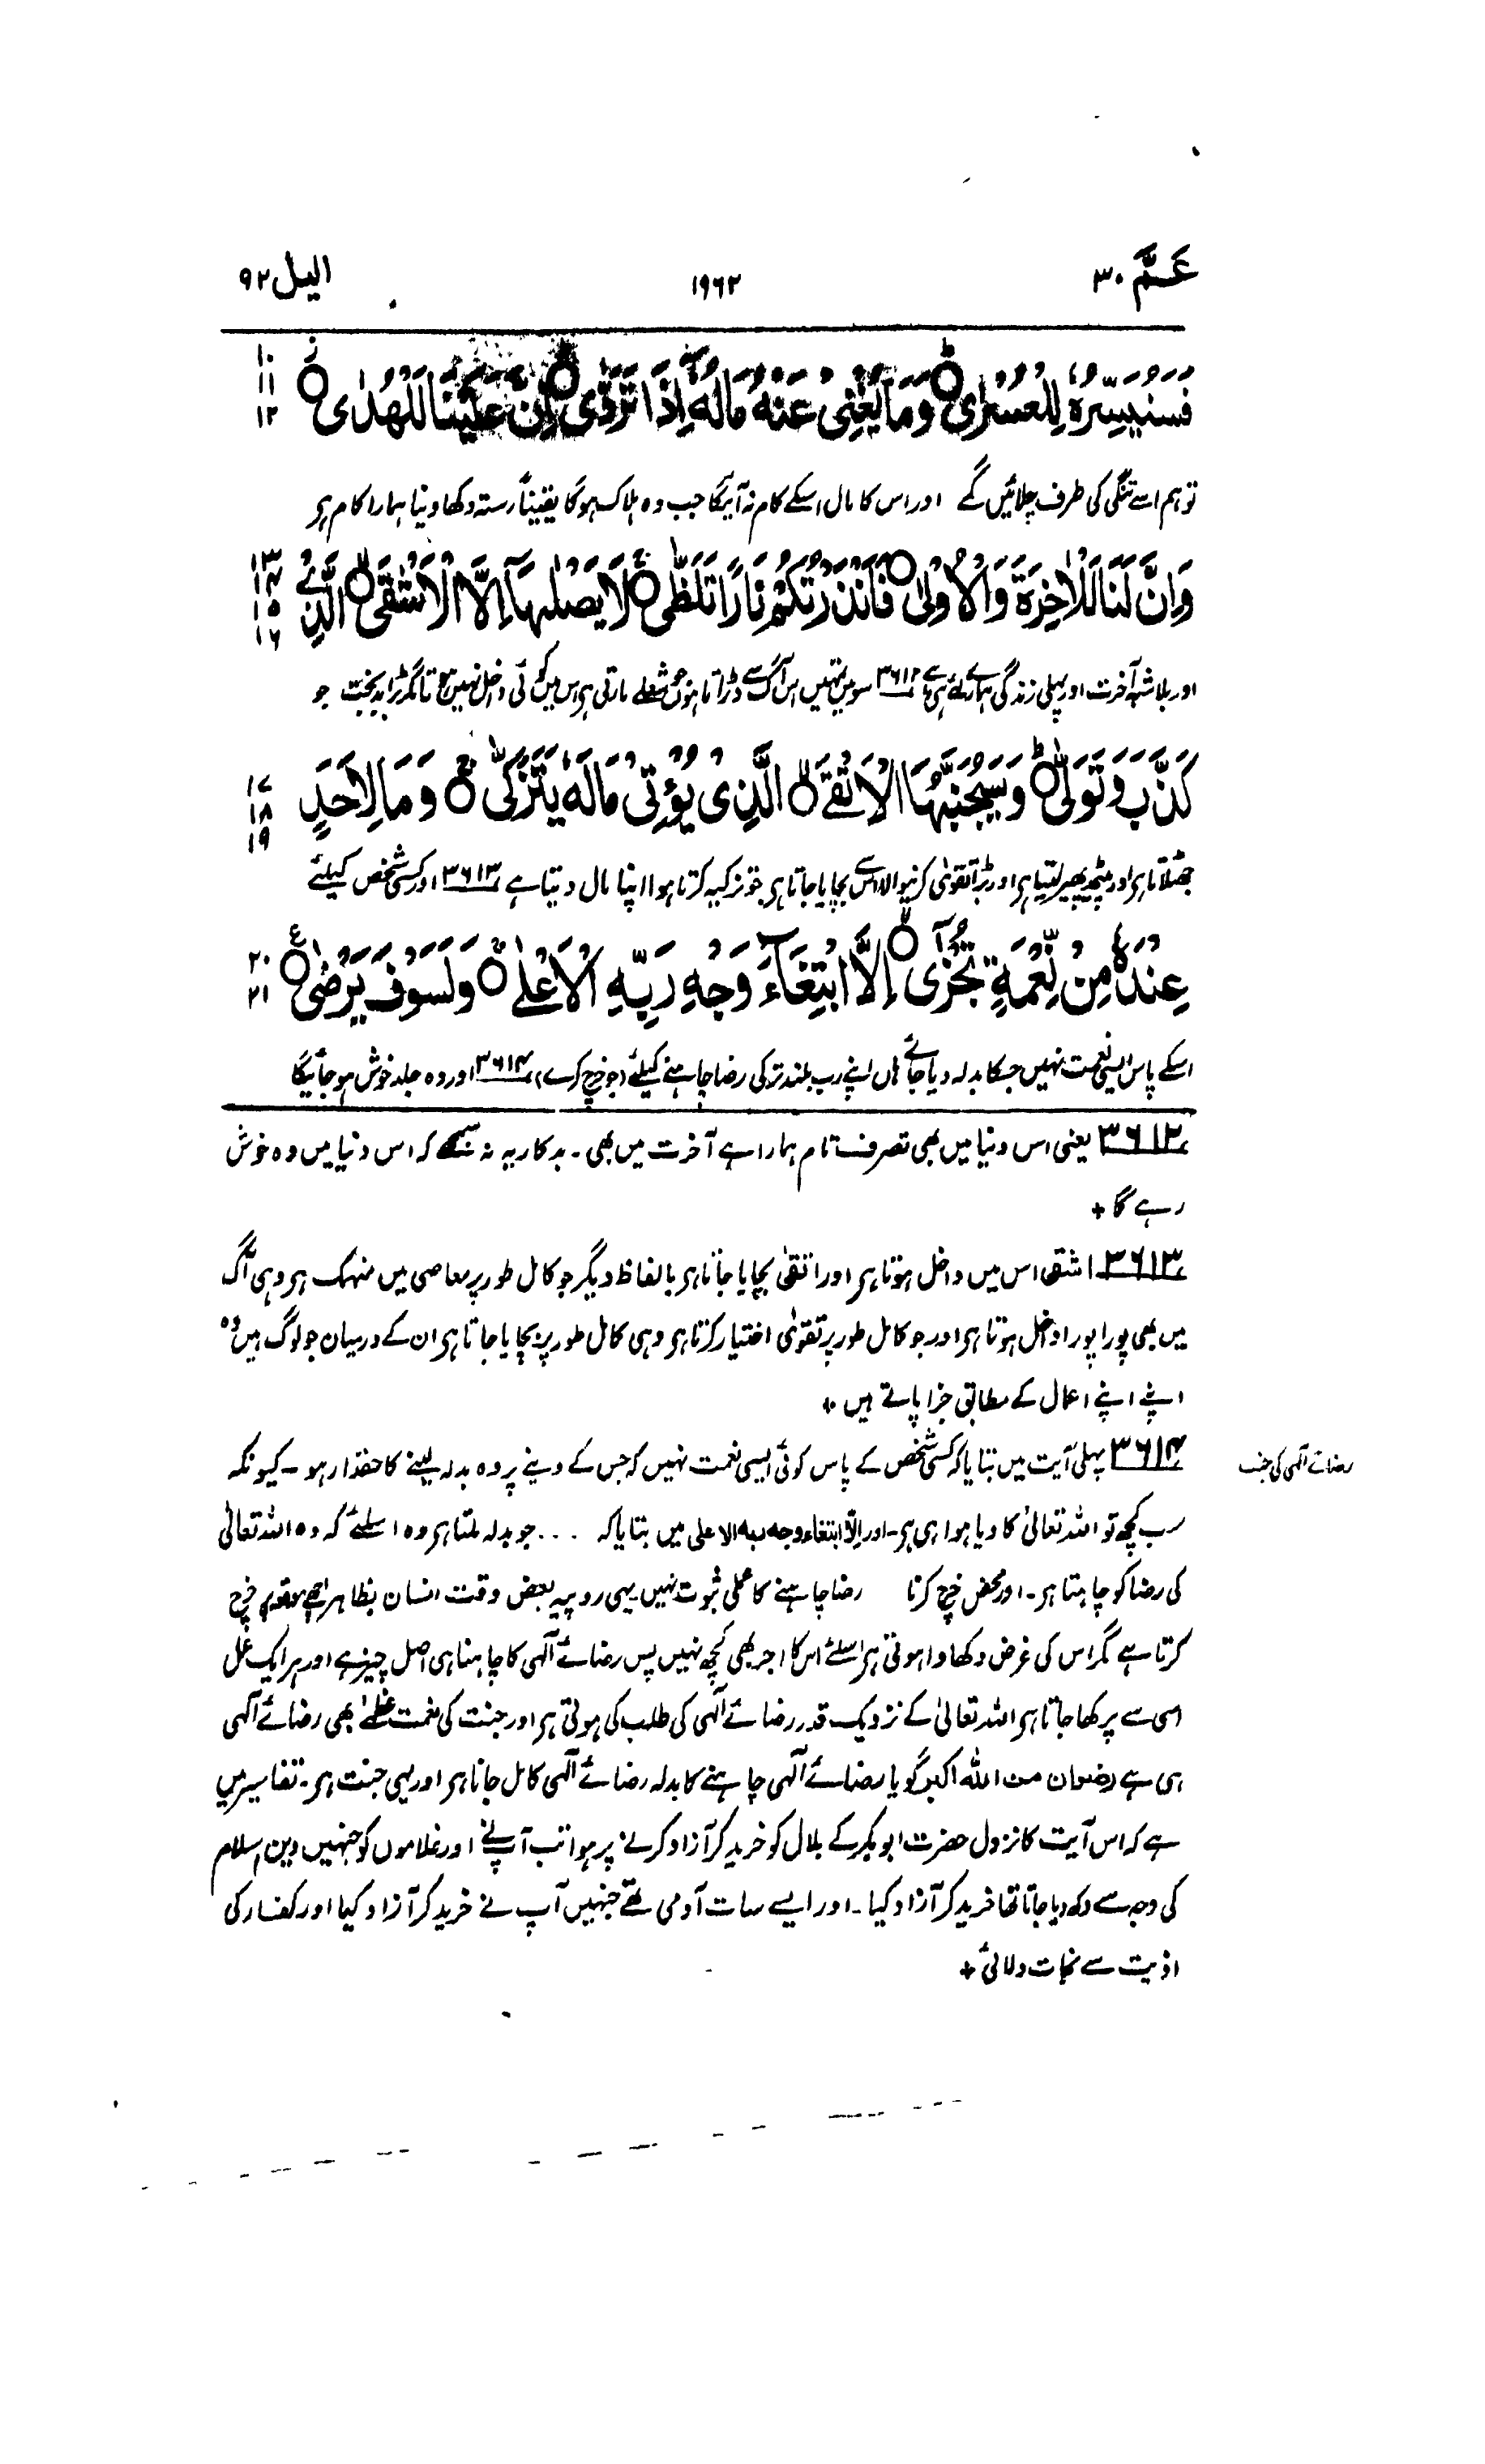 عَمَّ ۳۰
۱۹۶۲
الیل ۹۲
فَسَنُيَسِّرُهٗ لِلْعُسْرٰى ○ وَمَا يُغْنِىْ عَنْهُ مَالُهٗۤ اِذَا تَرَدّٰى ○ اِنَّ عَلَيْنَا لَلْهُدٰى ○
۱۰
۱۱
۱۲
تو ہم اسے تنگی کی طرف چلائیں گے اور اس کا مال اسکے کام نہ آئیگا جب وہ ہلاک ہوگا یقیناً رستہ دکھا دینا ہمارا کام ہی
وَاِنَّ لَنَا لَلْاٰخِرَةَ وَالْاُوْلٰى ○ فَاَنْذَرْتُكُمْ نَارًا تَلَظّٰى ○ لَا يَصْلٰىهَاۤ اِلَّا الْاَشْقَى ○ الَّذِىْ
۱۳
۱۴
۱۵
۱۶
اور بلاشبہ آخرت اور پہلی زندگی ہمارے لئے ہی ہے ۳۶۱۲ سو میں تمہیں اس آگ سے ڈراتا ہوں جو شعلے مارتی ہی اس میں کوئی داخل نہیں ہوتا مگر بڑا بدبخت جو
كَذَّبَ وَتَوَلّٰى ○ وَسَيُجَنَّبُهَا الْاَتْقَى ○ الَّذِىْ يُؤْتِىْ مَالَهٗ يَتَزَكّٰى ○ وَمَا لِاَحَدٍ
۱۷
۱۸
۱۹
جھٹلاتا ہی اور پیٹھ پھیر لیتا ہی اور بڑا تقویٰ کرنیوالا اس سے بچایا جاتا ہی جو تزکیہ کرتا ہوا اپنا مال دیتا ہے ۳۶۱۳ اور کسی شخص کیلئے
عِنْدَهٗ مِنْ نِّعْمَةٍ تُجْزٰۤى ○ اِلَّا ابْتِغَآءَ وَجْهِ رَبِّهِ الْاَعْلٰى ○ وَلَسَوْفَ يَرْضٰى ○
۲۰
۲۱
اسکے پاس ایسی نعمت نہیں جسکا بدلہ دیا جائے ہاں اپنے رب بلند تر کی رضا چاہنے کیلئے (جو خرچ کرے) ۳۶۱۴ اور وہ جلد خوش ہو جائیگا
۳۶۱۲ یعنی اس دنیا میں بھی تصرف تام ہمارا ہے آخرت میں بھی۔ بدکار یہ نہ سمجھے کہ اس دنیا میں وہ خوش
رہے گا +
۳۶۱۳ اشقی اس میں داخل ہوتا ہی اور اتقیٰ بچایا جاتا ہی بالفاظ دیگر جو کامل طور پر معاصی میں منہمک ہی وہی آگ
میں بھی پورا پورا داخل ہوتا ہی اور جو کامل طور پر تقویٰ اختیار کرتا ہی وہی کامل طور پر بچایا جاتا ہی ان کے درمیان جو لوگ ہیں وہ
اپنے اپنے اعمال کے مطابق جزا پاتے ہیں +
۳۶۱۴ پہلی آیت میں بتایا کہ کسی شخص کے پاس کوئی ایسی نعمت نہیں کہ جس کے دینے پر وہ بدلہ لینے کا حقدار ہو۔ کیونکہ
رضائے الٰہی کی
سب کچھ تو اللہ تعالیٰ کا دیا ہوا ہی ہی۔ اور اِلّا ابتغاء وجه ربه الاعلی میں بتایا کہ ... جو بدلہ ملتا ہی وہ اسلئے کہ وہ اللہ تعالیٰ
کی رضا کو چاہتا ہی۔ اور محض خرچ کرنا رضا چاہنے کا عملی ثبوت نہیں۔ یہی روپیہ بعض وقت انسان بظاہر اچھے موقعہ پر خرچ
کرتا ہے مگر اس کی غرض دکھاوا ہوتی ہی اسلئے اس کا اجر بھی کچھ نہیں پس رضائے الٰہی کا چاہنا ہی اصل چیز ہے اور ہر ایک عمل
اسی سے پرکھا جاتا ہی اللہ تعالیٰ کے نزدیک قدر رضائے الٰہی کی طلب کی ہوتی ہی اور جنت کی نعمت عظمےٰ بھی رضائے الٰہی
ہی ہے رضوان من اللّٰه اکبر گویا رضائے الٰہی چاہنے کا بدلہ رضائے الٰہی کا مل جانا ہی اور یہی جنت ہی۔ تفاسیر میں
ہے کہ اس آیت کا نزول حضرت ابوبکر کے بلال کو خرید کر آزاد کرنے پر ہوا تب آپ نے اور غلاموں کو جنہیں دین اسلام
کی وجہ سے دکھ دیا جاتا تھا خرید کر آزاد کیا۔ اور ایسے سات آدمی تھے جنہیں آپ نے خرید کر آزاد کیا اور کفار کی
اذیت سے نجات دلائی +